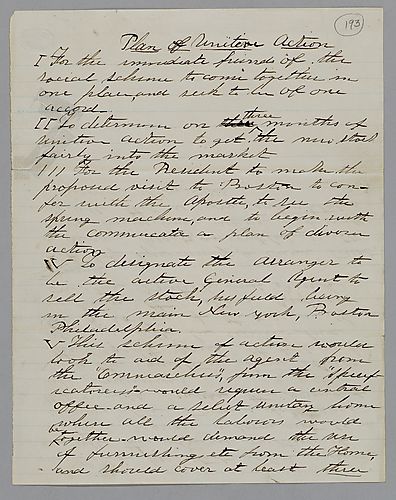 193
Plan of Unitive Action
I For the immediate friends of the
social scheme to come together in
one place, and seek to be of one
accord.
II To determine on three months of
unitive action to get the new stock
fairly into the market
III For the President to make the
proposed visit to Boston to con-
fer with the Apostle, to see the
spring machine, and to begin with
the communicate a plan of
action
IV To designate the Arranger to
be the active General Agent to
sell the stock, his field being
in the main New York, Boston
Philadelphia.
V This scheme of action would
look to aid of the agent from
the "Commarchie", from the
would require a central
office and a select unitary home
where all the laborers would
together would demand the use
of furnishing etc from the Home,
and should cover at least three